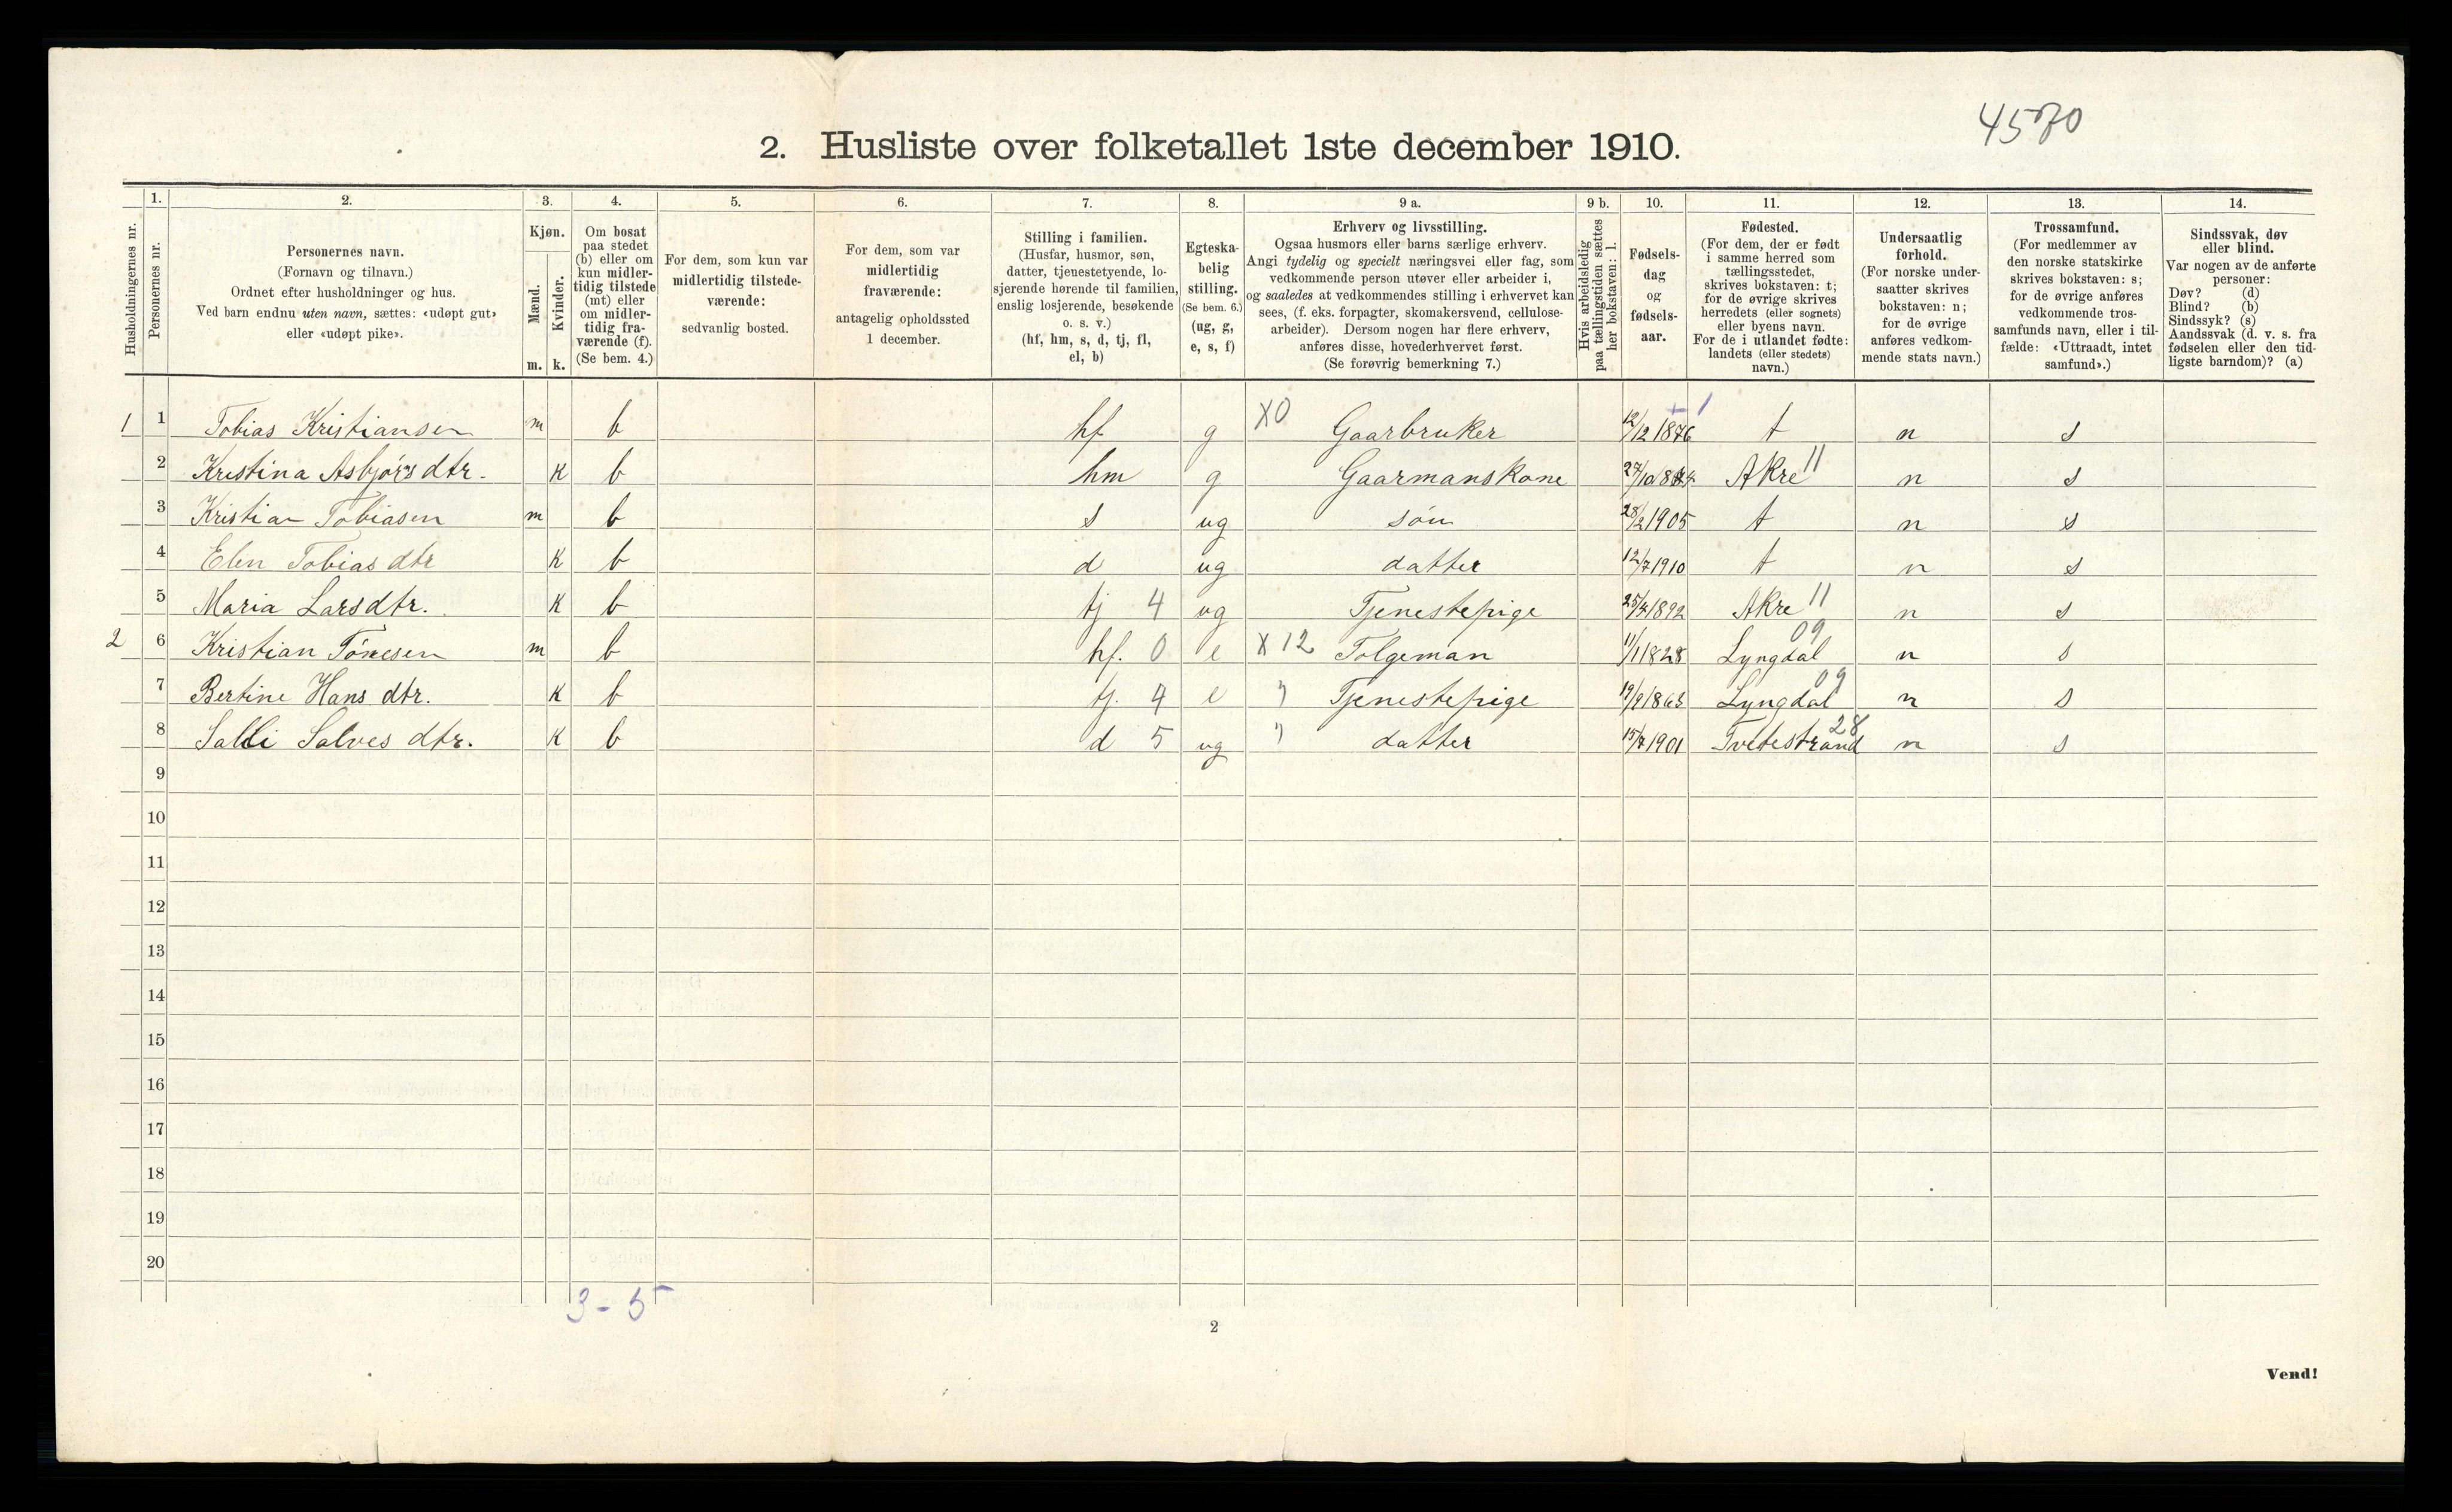 4570
2. Husliste over folketallet 1ste december 1910.
Husholdningernes nr.
1. Personernes nr.
2. Personernes navn.
(Fornavn og tilnavn.)
Ordnet efter husholdninger og hus.
Ved barn endnu uten navn, sættes: «udøpt gut»
eller «udøpt pike».
3. Kjøn.
Mænd. m.
Kvinder. k.
4. Om bosat
paa stedet
(b) eller om
kun midler-
tidig tilstede
(mt) eller
om midler-
tidig fra-
værende (f).
(Se bem. 4.)
5. For dem, som kun var
midlertidig tilstede-
værende:
sedvanlig bosted.
6. For dem, som var
midlertidig
fraværende:
antagelig opholdssted
1 december.
7. Stilling i familien.
(Husfar, husmor, søn,
datter, tjenestetyende, lo-
sjerende hørende til familien,
enslig losjerende, besøkende
o. s. v.)
(hf, hm, s, d, tj, fl,
el, b)
8. Egteska-
belig
stilling.
(Se bem. 6.)
(ug, g,
e, s, f)
9 a. Erhverv og livsstilling.
Ogsaa husmors eller barns særlige erhverv.
Angi tydelig og specielt næringsvei eller fag, som
vedkommende person utøver eller arbeider i,
og saaledes at vedkommendes stilling i erhvervet kan
sees, (f. eks. forpagter, skomakersvend, cellulose-
arbeider). Dersom nogen har flere erhverv,
anføres disse, hovederhvervet først.
(Se forøvrig bemerkning 7.)
9 b. Hvis arbeidsledig
paa tællingstiden sættes
her bokstaven: l.
10. Fødsels-
dag
og
fødsels-
aar.
11. Fødested.
(For dem, der er født
i samme herred som
tællingsstedet,
skrives bokstaven: t;
for de øvrige skrives
herredets (eller sognets)
eller byens navn.
For de i utlandet fødte:
landets (eller stedets)
navn.)
12. Undersaatlig
forhold.
(For norske under-
saatter skrives
bokstaven: n;
for de øvrige
anføres vedkom-
mende stats navn.)
13. Trossamfund.
(For medlemmer av
den norske statskirke
skrives bokstaven: s;
for de øvrige anføres
vedkommende tros-
samfunds navn, eller i til-
fælde: «Uttraadt, intet
samfund».)
14. Sindssvak, døv
eller blind.
Var nogen av de anførte
personer:
Døv? (d)
Blind? (b)
Sindssyk? (s)
Aandssvak (d. v. s. fra
fødselen eller den tid-
ligste barndom)? (a)
1 1 Tobias Kristiansen m b hf g X0 Gaarbruker 12/12 1876 t n s
2 Kristina Asbjörsdtr. K b hm g Gaarmanskone 27/10 1874 Akre 11 n s
3 Kristian Tobiasen m b s ug sön 28/2 1905 t n s
4 Elen Tobias dtr K b d ug datter 12/7 1910 t n s
5 Maria Larsdtr. K b tj 4 ug Tjenestepige 25/7 1892 Akre 11 n s
2 6 Kristian Tönesen m b hf. 0 e X 12 Folgeman 11/1 1828 Lyngdal 09 n s
7 Bertine Hans dtr. K b tj. 4 e " Tjenestepige 19/9 1863 Lyngdal 09 n s
8 Salli Salves dtr. K b d 5 ug " datter 15/7 1901 Tvetestrand 28 n s
9
10
11
12
13
14
15
16
17
18
19
20
3 - 5
2
Vend!